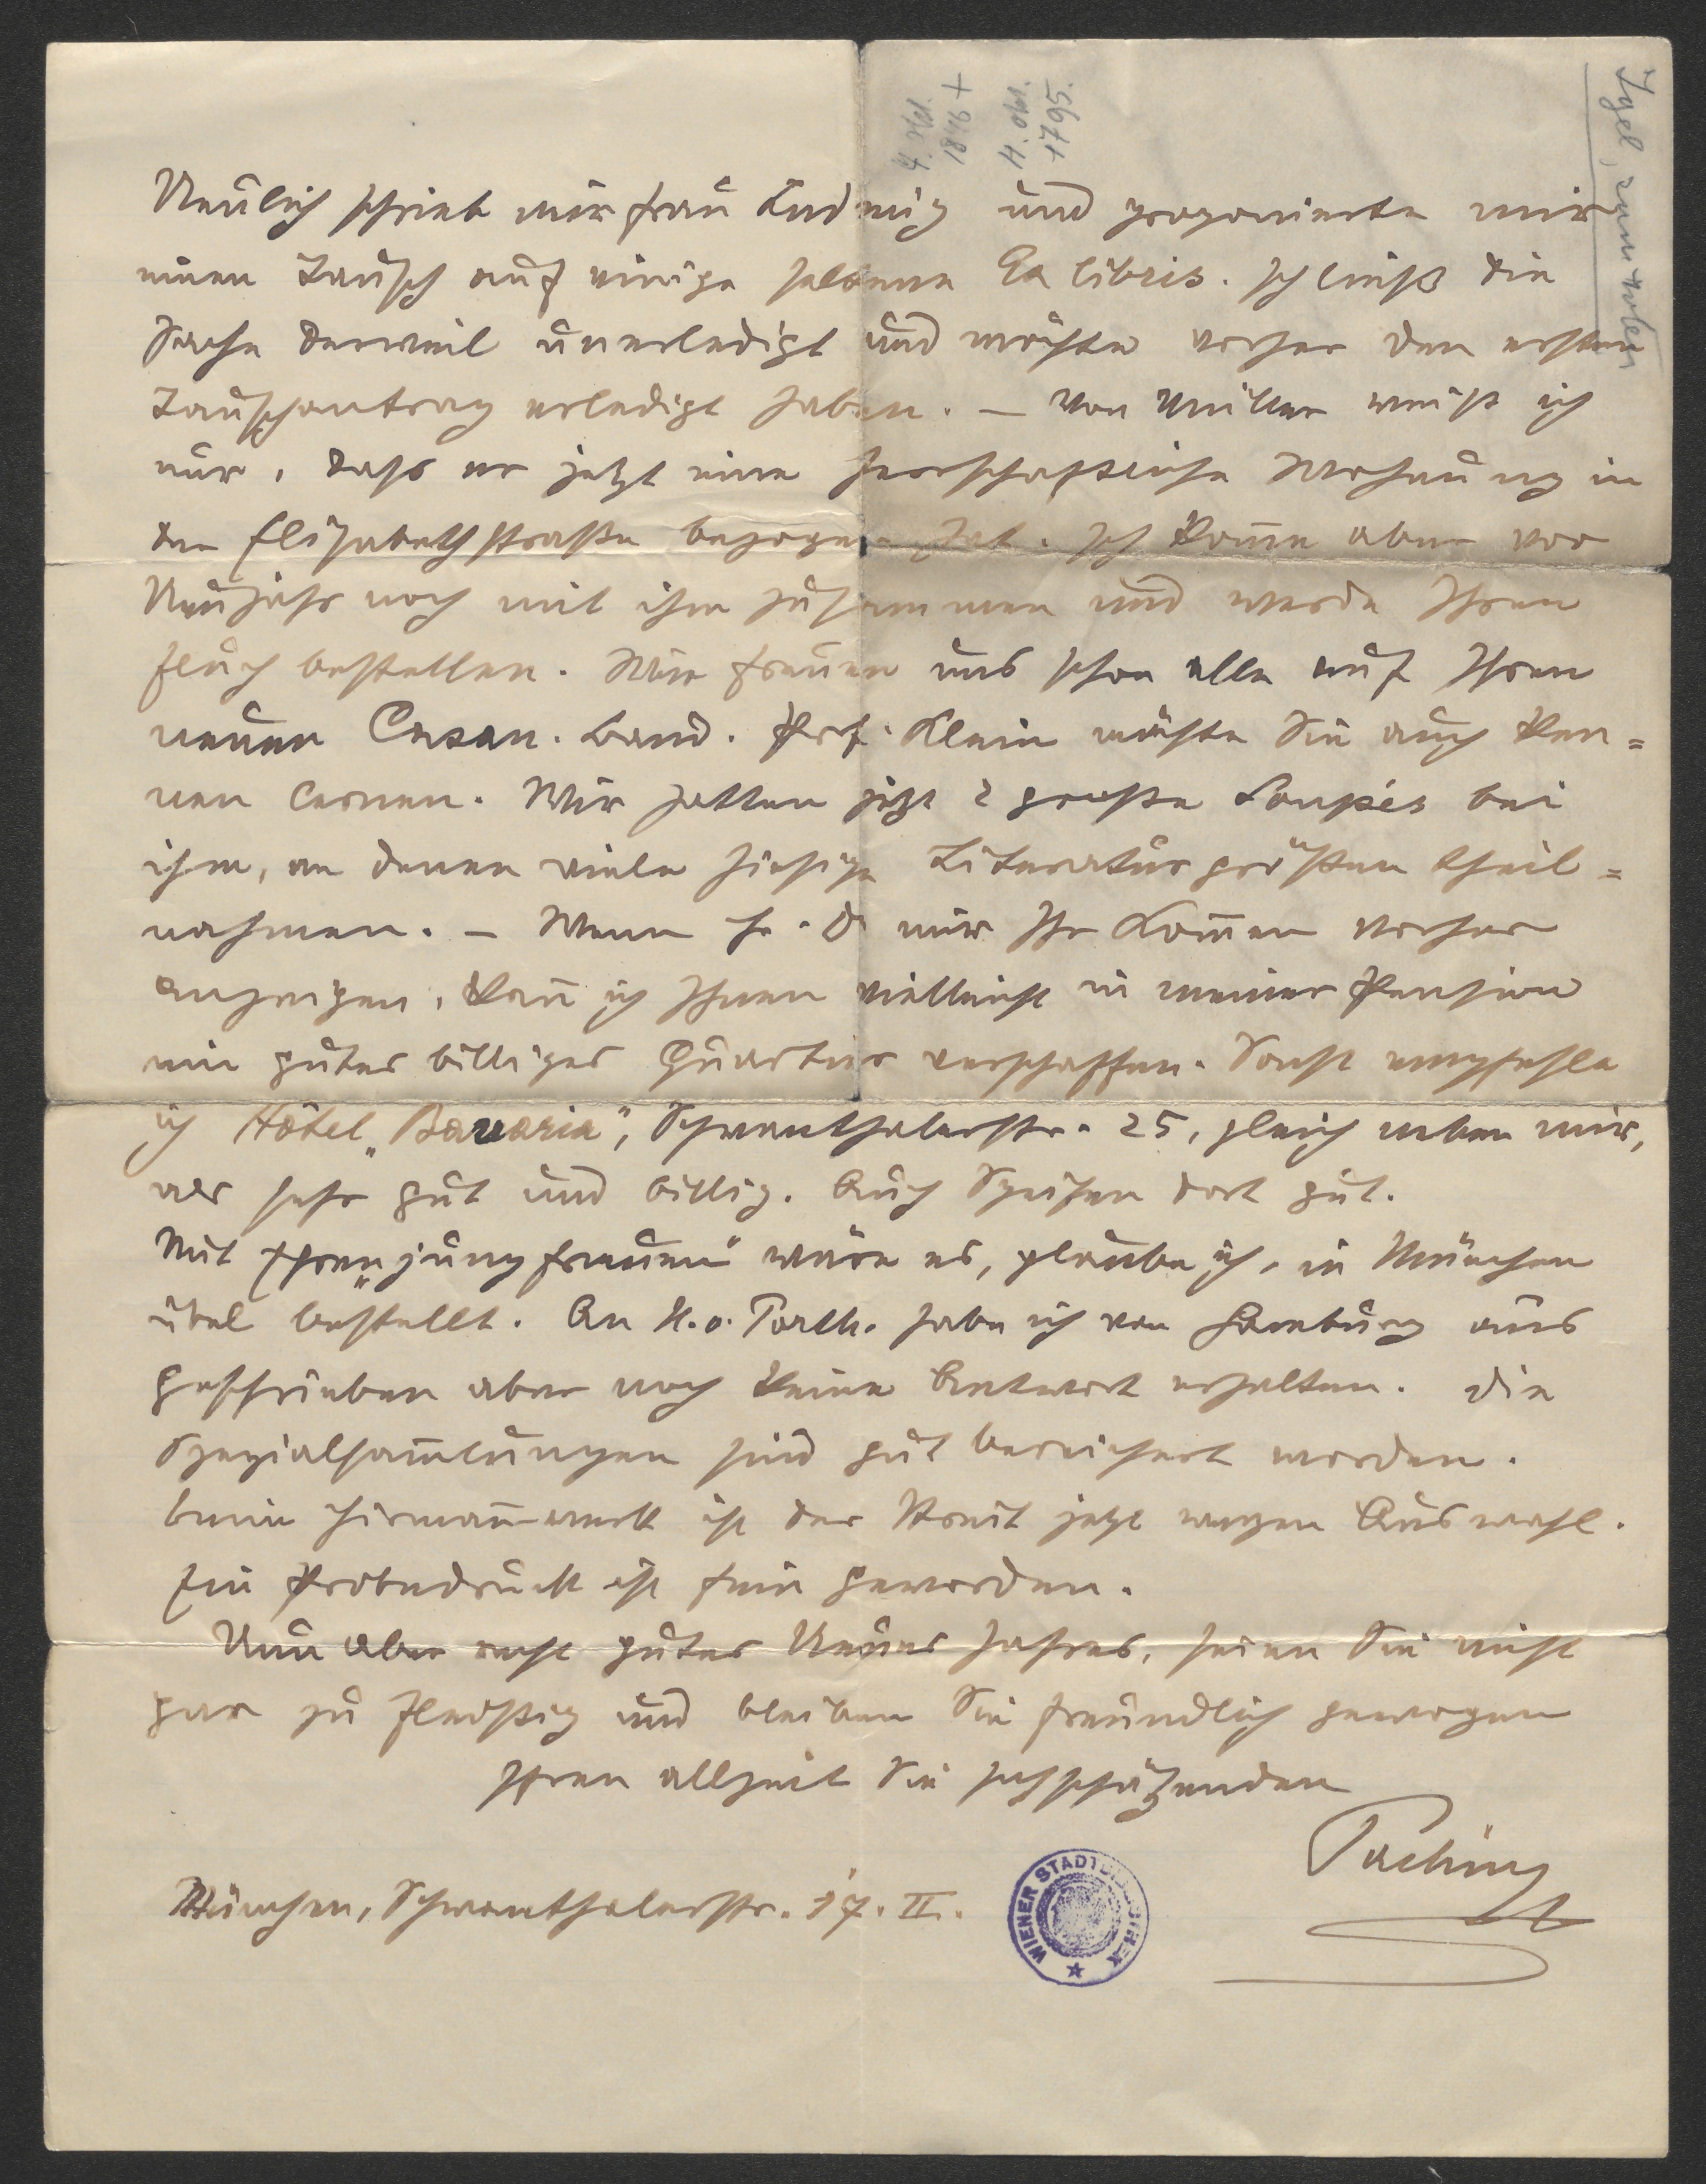 Neulich schrieb mir Frau Ludwig und proponierte mir
einen Tausch auf einige seltene Ex libris. Ich ließ die
Sache derweil unerledigt und möchte vorher den ersten
Tauschantrag erledigt haben. – Von Müller weiß ich
nur, dass er jetzt eine herrschaftliche Wohnung in
der Elisabethstraße bezogen hat. Ich kom̄e aber vor
Neujahr noch mit ihm zusammen und werde Ihren
Fluch bestellen. Wir freuen uns schon alle auf Ihren
neuen Casan. Band. Prof. Klein möchte Sie auch ken=
nen lernen. Wir hatten jetzt 2 große Soupés bei
ihm, an denen viele hiesige Literaturgrößen theil=
nahmen. – Wenn Sie mir Ihr Kom̄en vorher
anzeigen, kan̄ ich Ihnen vielleicht in meiner Pension
ein gutes billiges Quartier verschaffen. Sonst empfehle
ich Hôtel „Bavaria", Schwanthalerstr. 25, gleich neben mir,
sehr gut und billig. Auch Speisen dort gut.
Mit Ihren „Jungfrauen" wäre es, glaube ich, in München
übel bestellt. An H. v. Porth. habe ich von Hamburg aus
geschrieben aber noch keine Antwort erhalten. Die
Spezialsam̄lungen sind gut bereichert worden.
Beim Hirman̄werk ist der Streit jetzt wegen Auswahl.
Ein Probedruck ist fein geworden.
Nun aber recht gutes Neues Jahres, seien Sie nicht
gar zu fleißig und bleiben Sie freundlich gewogen
Ihren allzeit Sie hochschätzenden
Pachinger
München, Schwanthalerstr. 17. II.
WIENER STADTBIBLIOTHEK
4. Okt.
1846 +
4. Okt.
1795.
Igel, zum roten